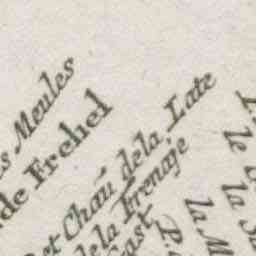 s Meules
de Frehel
et Chau de la Late
de la Frenaie
Cast
P.
le
la
la M